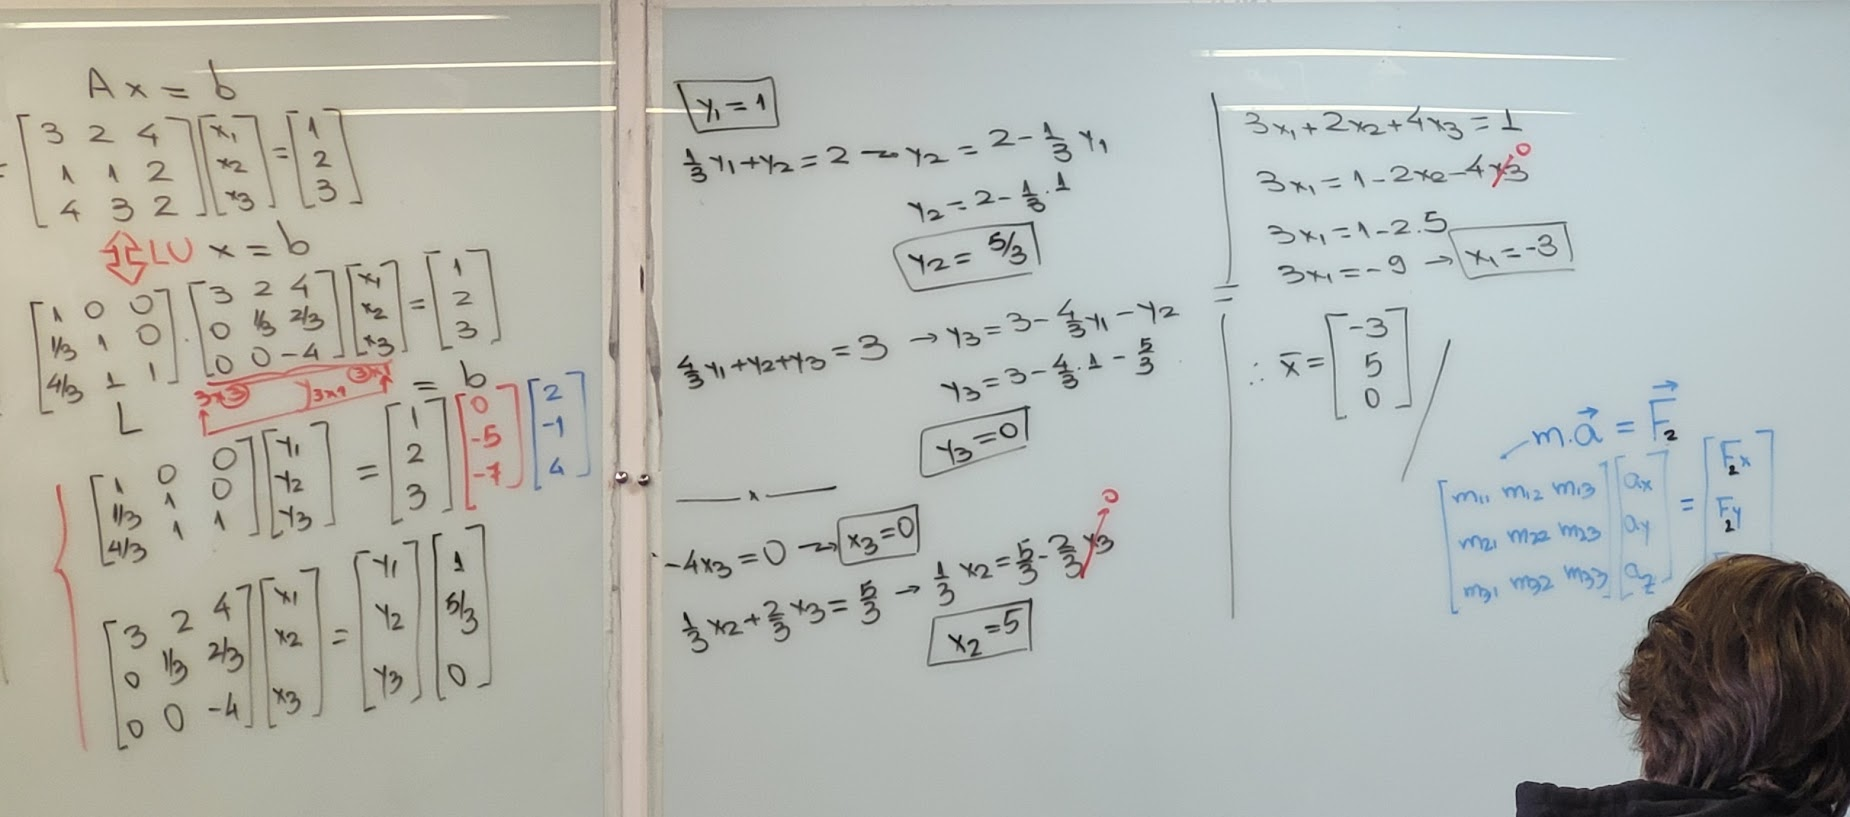 Ax = b
[3 2 4; 1 1 2; 4 3 2] [x1; x2; x3] = [1; 2; 3]
LU x = b
[1 0 0; 1/3 1 0; 4/3 1 1] · [3 2 4; 0 1/3 2/3; 0 0 -4] [x1; x2; x3] = [1; 2; 3]
3x3 3x1
L y3x1 = b
[1 0 0; 1/3 1 0; 4/3 1 1] [y1; y2; y3] = [1; 2; 3] [0; -5; -7] [2; -1; 4]
[3 2 4; 0 1/3 2/3; 0 0 -4] [x1; x2; x3] = [y1; y2; y3] [1; 5/3; 0]
y1 = 1
1/3 y1 + y2 = 2 → y2 = 2 - 1/3 y1
y2 = 2 - 1/3 · 1
y2 = 5/3
4/3 y1 + y2 + y3 = 3 → y3 = 3 - 4/3 y1 - y2
y3 = 3 - 4/3 · 1 - 5/3
y3 = 0
—x—
-4x3 = 0 → x3 = 0
1/3 x2 + 2/3 x3 = 5/3 → 1/3 x2 = 5/3 - 2/3 x3 0
x2 = 5
3x1 + 2x2 + 4x3 = 1
3x1 = 1 - 2x2 - 4x3 0
3x1 = 1 - 2.5
3x1 = -9 → x1 = -3
∴ x̄ = [-3; 5; 0]
m.a⃗ = F⃗2
[m11 m12 m13; m21 m22 m23; m31 m32 m33] [ax; ay; az] = [F2x; F2y;